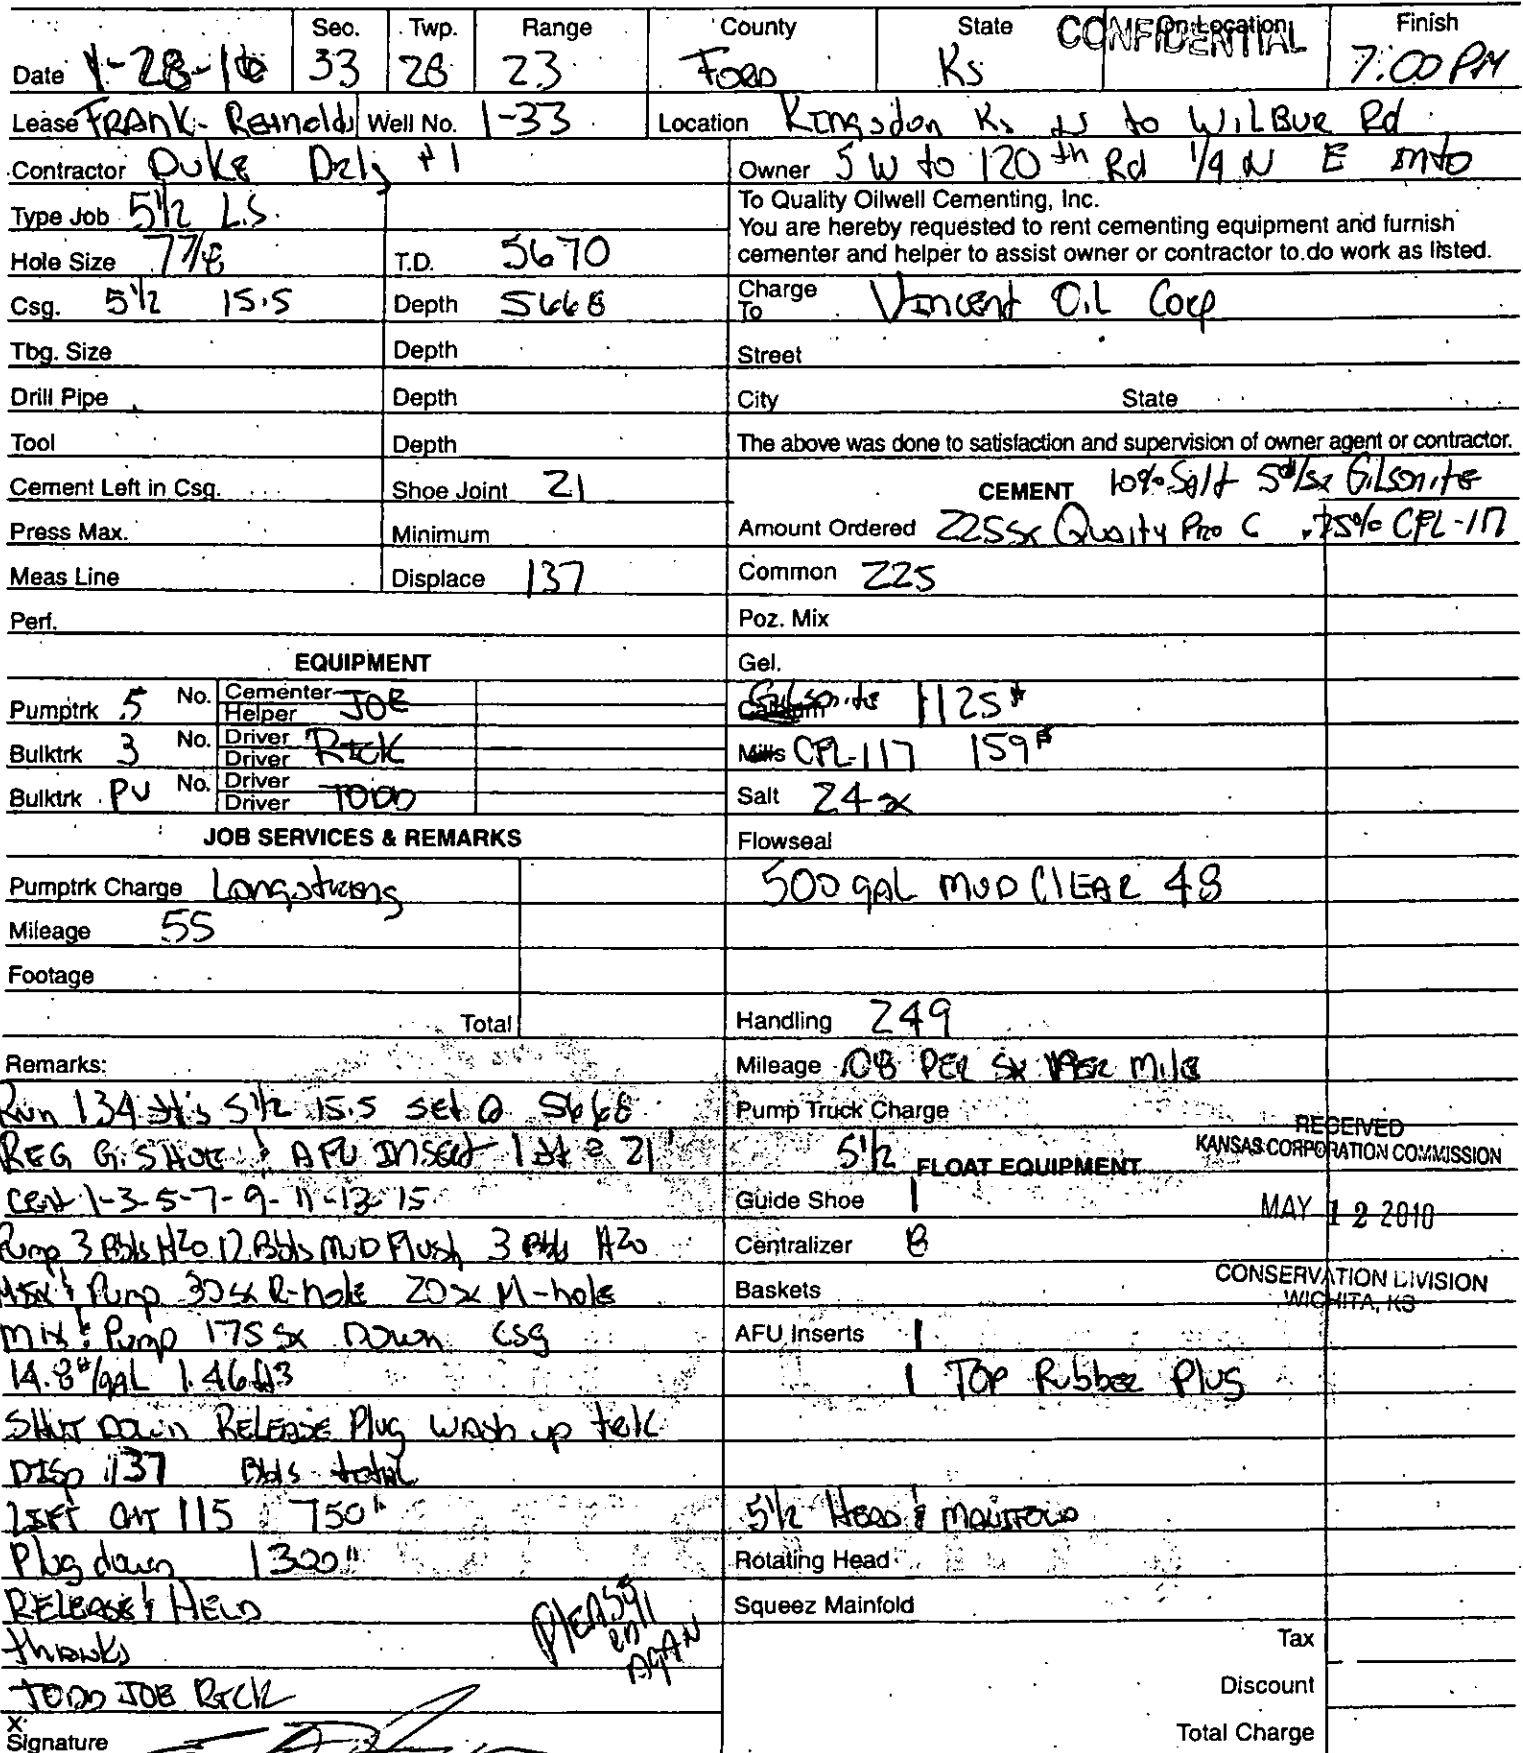 Sec. Twp. Range County State CONFIDENTIAL On Location Finish
Date 1-28-10 33 28 23 Ford Ks 7:00 PM
Lease Frank-Reinolds Well No. 1-33 Location Kingsdon Ks 1S to Wilbur Rd
Contractor Duke Drlg #1 Owner 5 W to 120th Rd 1/4 N E into
Type Job 5 1/2 L.S. To Quality Oilwell Cementing, Inc.
You are hereby requested to rent cementing equipment and furnish
cementer and helper to assist owner or contractor to do work as listed.
Hole Size 7 7/8 T.D. 5670
Csg. 5 1/2 15.5 Depth 5668 Charge To Vincent Oil Corp
Tbg. Size Depth Street
Drill Pipe Depth City State
Tool Depth The above was done to satisfaction and supervision of owner agent or contractor.
Cement Left in Csg. Shoe Joint 21 CEMENT 10% Salt 5#/sx Gilsonite
Press Max. Minimum Amount Ordered 225sx Quality Pro C .75% CPL-117
Meas Line Displace 137 Common 225
Perf. Poz. Mix
EQUIPMENT Gel.
Pumptrk 5 No. Cementer Helper Joe Gilsonite 1125#
Bulktrk 3 No. Driver Driver Rick CPL-117 159#
Bulktrk PU No. Driver Driver Todd Salt 24sx
JOB SERVICES & REMARKS Flowseal
Pumptrk Charge Longstring 500 gal Mud Clear 48
Mileage 55
Footage
Total Handling 249
Remarks: Mileage .08 per sx per mile
Run 134 Jt's 5 1/2 15.5 set @ 5668 Pump Truck Charge
RECEIVED
KANSAS CORPORATION COMMISSION
Reg G. Shoe & AFU Insert 1 Jt @ 21' 5 1/2 FLOAT EQUIPMENT
Cent 1-3-5-7-9-11-13-15 Guide Shoe 1
MAY 12 2010
Pump 3 Bbls H2O 12 Bbls Mud Flush 3 Bbls H2O Centralizer 8
CONSERVATION DIVISION
WICHITA, KS
Mix & Pump 30sx R-hole 20sx M-hole Baskets
Mix & Pump 175sx Down csg AFU Inserts 1
14.8#/gal 1.46 ft3 1 Top Rubber Plug
Shut Down Release Plug Wash up trk
Disp 137 Bbls total
Lift CAT 115 750# 5 1/2 Head & Manifold
Plug down 1300# Rotating Head
Release & Held Squeez Mainfold
Thanks Please call again Tax
Todd Joe Rick Discount
X
Signature Total Charge